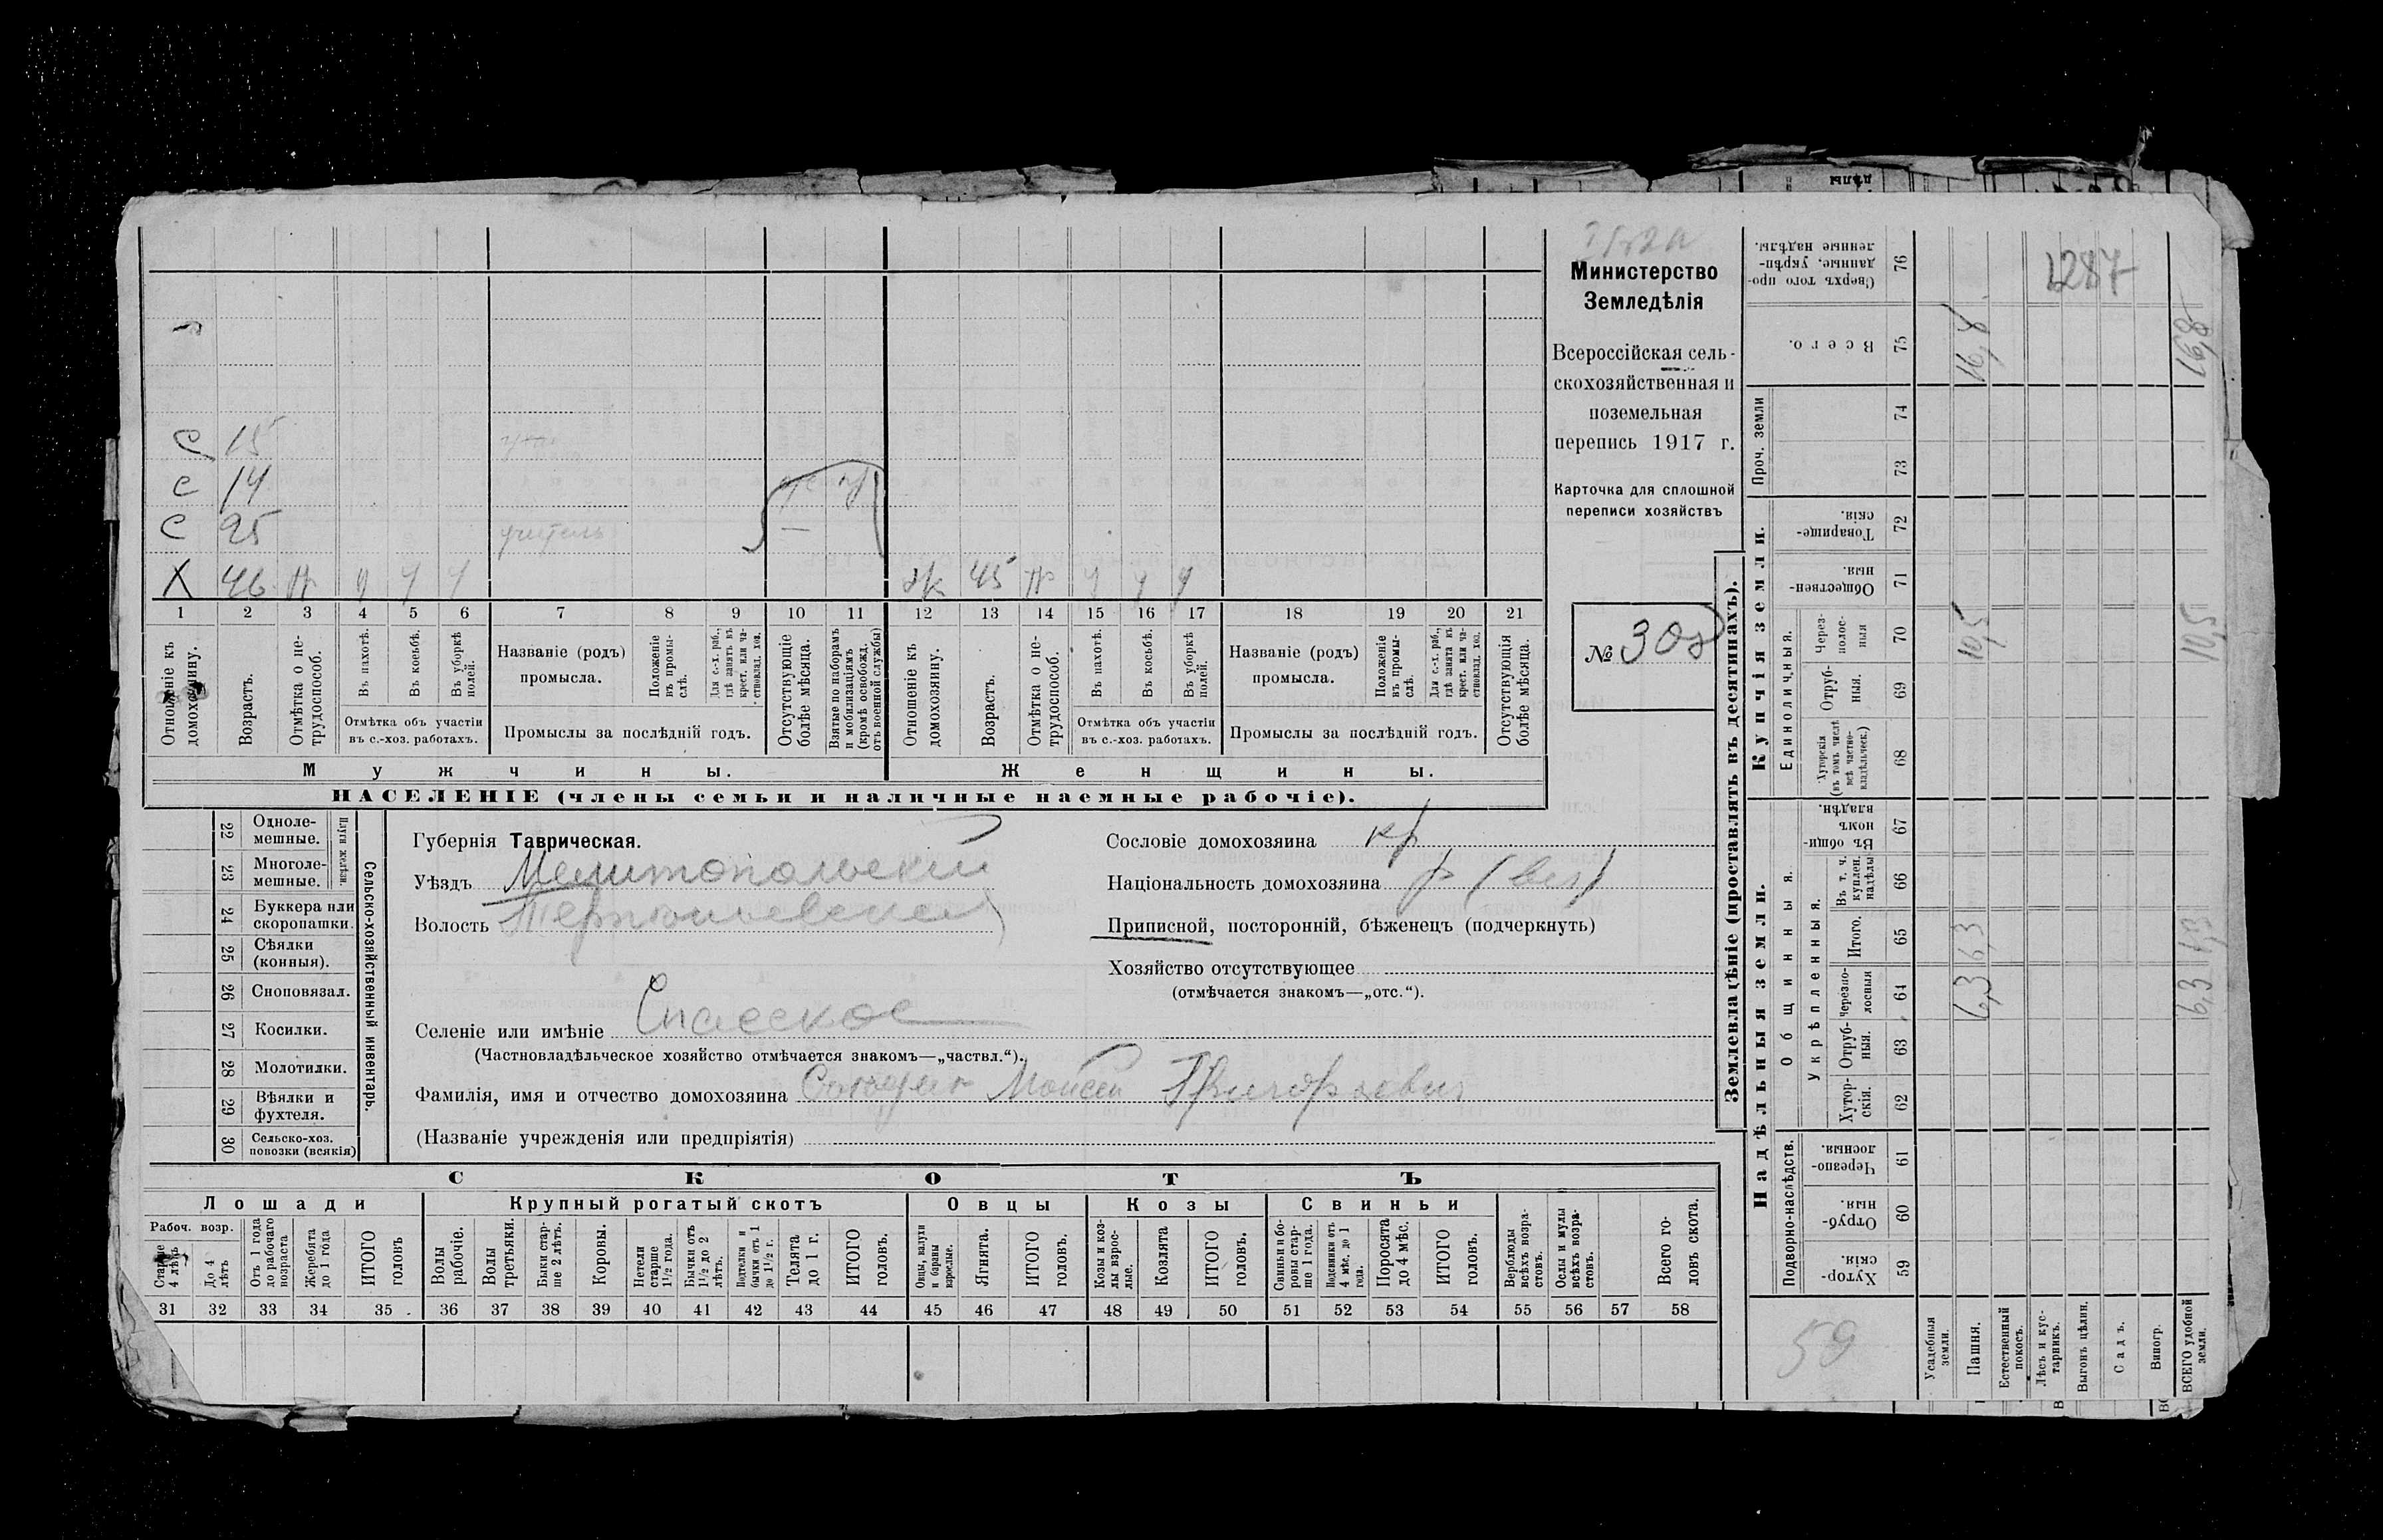 Министерство
Земледѣлія
Всероссійская сель-
скохозяйственная и
поземельная
перепись 1917 г.
Карточка для сплошной
переписи хозяйствъ
№ 308
С 15
С 14
С 25 учитель
Х 46 Н ж 45 Н
1 2 3 4 5 6 7 8 9 10 11 12 13 14 15 16 17 18 19 20 21
Отношеніе къ домохозяину.
Возрастъ.
Отмѣтка о не-трудоспособ.
Въ пахотѣ.
Въ косьбѣ.
Въ уборкѣ полей.
Отмѣтка объ участіи
въ с.-хоз. работахъ.
Названіе (родъ)
промысла.
Положеніе въ промы-слѣ.
Для с.-х. раб., гдѣ занятъ въ крест. или ча-стновлад. хоз.
Промыслы за послѣдній годъ.
Отсутствующіе болѣе мѣсяца.
Взятые по наборамъ и мобилизаціямъ (кромѣ освобожд. отъ военной службы)
Отношеніе къ домохозяину.
Возрастъ.
Отмѣтка о не-трудоспособ.
Въ пахотѣ.
Въ косьбѣ.
Въ уборкѣ полей.
Отмѣтка объ участіи
въ с.-хоз. работахъ.
Названіе (родъ)
промысла.
Положеніе въ промы-слѣ.
Для с.-х. раб., гдѣ занята въ крест. или ча-стновлад. хоз.
Промыслы за послѣдній годъ.
Отсутствующія болѣе мѣсяца.
Мужчины. Женщины.
НАСЕЛЕНІЕ (члены семьи и наличные наемные рабочіе).
22 Одноле-мешные.
23 Многоле-мешные.
Плуги желѣзн.
24 Буккера или скоропашки.
25 Сѣялки (конныя).
26 Сноповязал.
27 Косилки.
28 Молотилки.
29 Вѣялки и фухтеля.
30 Сельско-хоз. повозки (всякія)
Сельско-хозяйственный инвентарь.
Губернія Таврическая.
Уѣздъ Мелитопольскій
Волость
Селеніе или имѣніе Спасское
(Частновладѣльческое хозяйство отмѣчается знакомъ—„частвл.“).
Фамилія, имя и отчество домохозяина Моисей Григорьевич
(Названіе учрежденія или предпріятія)
Сословіе домохозяина кр
Національность домохозяина р (вел)
Приписной, посторонній, бѣженецъ (подчеркнуть)
Хозяйство отсутствующее
(отмѣчается знакомъ—„отс.“).
СКОТЪ
Лошади Крупный рогатый скотъ Овцы Козы Свиньи
Рабоч. возр.
Старше 4 лѣтъ
До 4 лѣтъ
Отъ 1 года до рабочаго возраста
Жеребята до 1 года
ИТОГО головъ
Волы рабочіе.
Волы третьяки.
Быки стар-ше 2 лѣтъ.
Коровы.
Нетели старше 1½ года.
Бычки отъ 1½ до 2 лѣтъ.
Подтелки и бычки отъ 1 до 1½ г.
Телята до 1 г.
ИТОГО головъ.
Овцы, валухи и бараны взрослые.
Ягнята.
ИТОГО головъ.
Козы и коз-лы взрос-лые.
Козлята
ИТОГО головъ.
Свиньи и бо-ровы стар-ше 1 года.
Подсвинки отъ 4 мѣс. до 1 года.
Поросята до 4 мѣс.
ИТОГО головъ.
Верблюды всѣхъ возра-стовъ.
Ослы и мулы всѣхъ возра-стовъ.
Всего го-ловъ скота.
31 32 33 34 35 36 37 38 39 40 41 42 43 44 45 46 47 48 49 50 51 52 53 54 55 56 57 58
Землевладѣніе (проставлять въ десятинахъ).
Сверхъ того про-данные, укрѣп-ленные надѣлы. 76
1287
Всего. 75 16,8 16,8
Проч. земли 74
73
Купчія земли.
Товарище-скія. 72
Обществен-ныя. 71
Единоличныя.
Через-полос-ныя 70 10,5 10,5
Отруб-ныя. 69
Хуторскія (въ томъ числѣ всѣ частно-владѣльческ.) 68
Надѣльныя земли.
Общинныя.
Въ общи-номъ владѣн. 67
Укрѣпленныя.
Въ т. ч. куплен. надѣлы 66
Итого. 65 6,3 6,3
Черезпо-лосныя 64 6,3 6,3
Отруб-ныя. 63
Хутор-скія. 62
Подворно-наслѣдств.
Черезпо-лосныя. 61
Отруб-ныя. 60
Хутор-скія. 59
59
Усадебныя земли.
Пашня.
Естественный покосъ.
Лѣсъ и кус-тарникъ.
Выгонъ цѣлин.
Садъ.
Виногр.
ВСЕГО удобной земли.